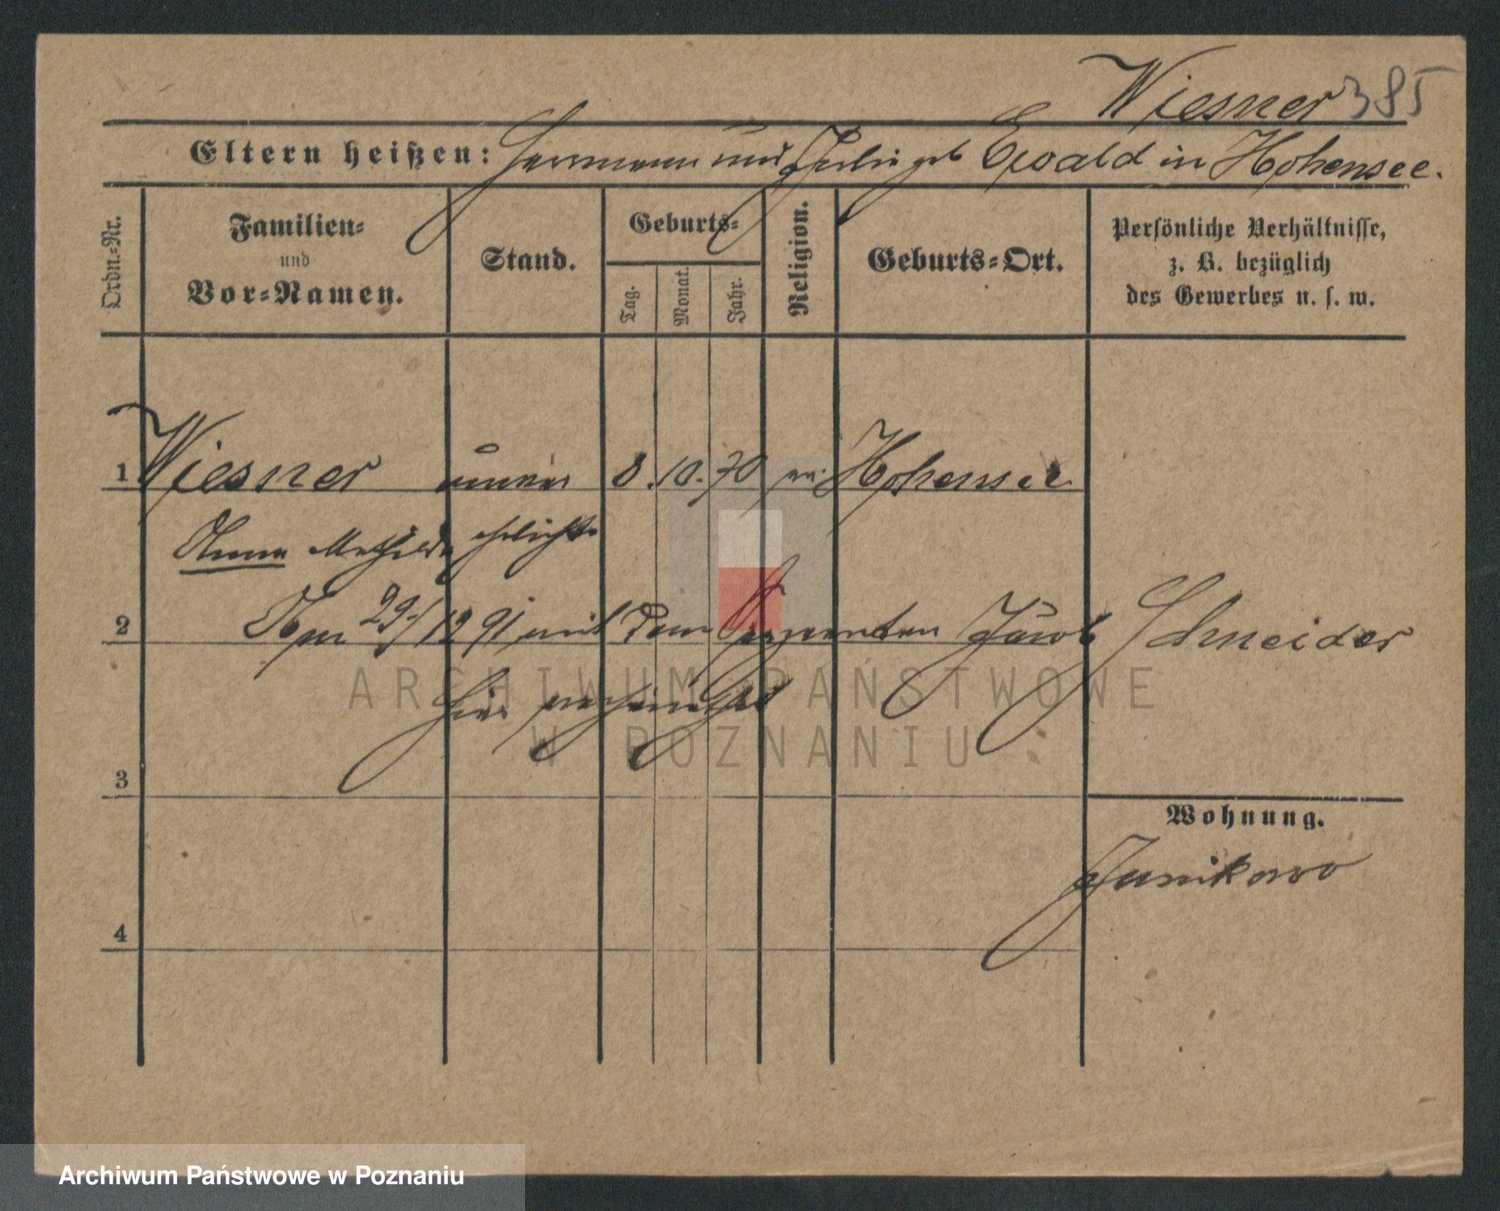 Wiesner 385
Eltern heißen: Herrmann und geb Ewald in Hohensee.
Ordn.-Nr.
Familien-
und
Vor-Namen.
Stand.
Geburts-
Tag.
Monat.
Jahr.
Religion.
Geburts-Ort.
Persönliche Verhältnisse,
z. B. bezüglich
des Gewerbes u. s. w.
1 Wiesner 8. 10. 70 ev. Hohensee
Anna Mathilde ehelicht
2 Am 29/12 91 mit dem Sergeanten Jacob Schneider
hier verheirathet
3
Wohnung.
Junikowo
4
ARCHIWUM PAŃSTWOWE
W POZNANIU
Archiwum Państwowe w Poznaniu